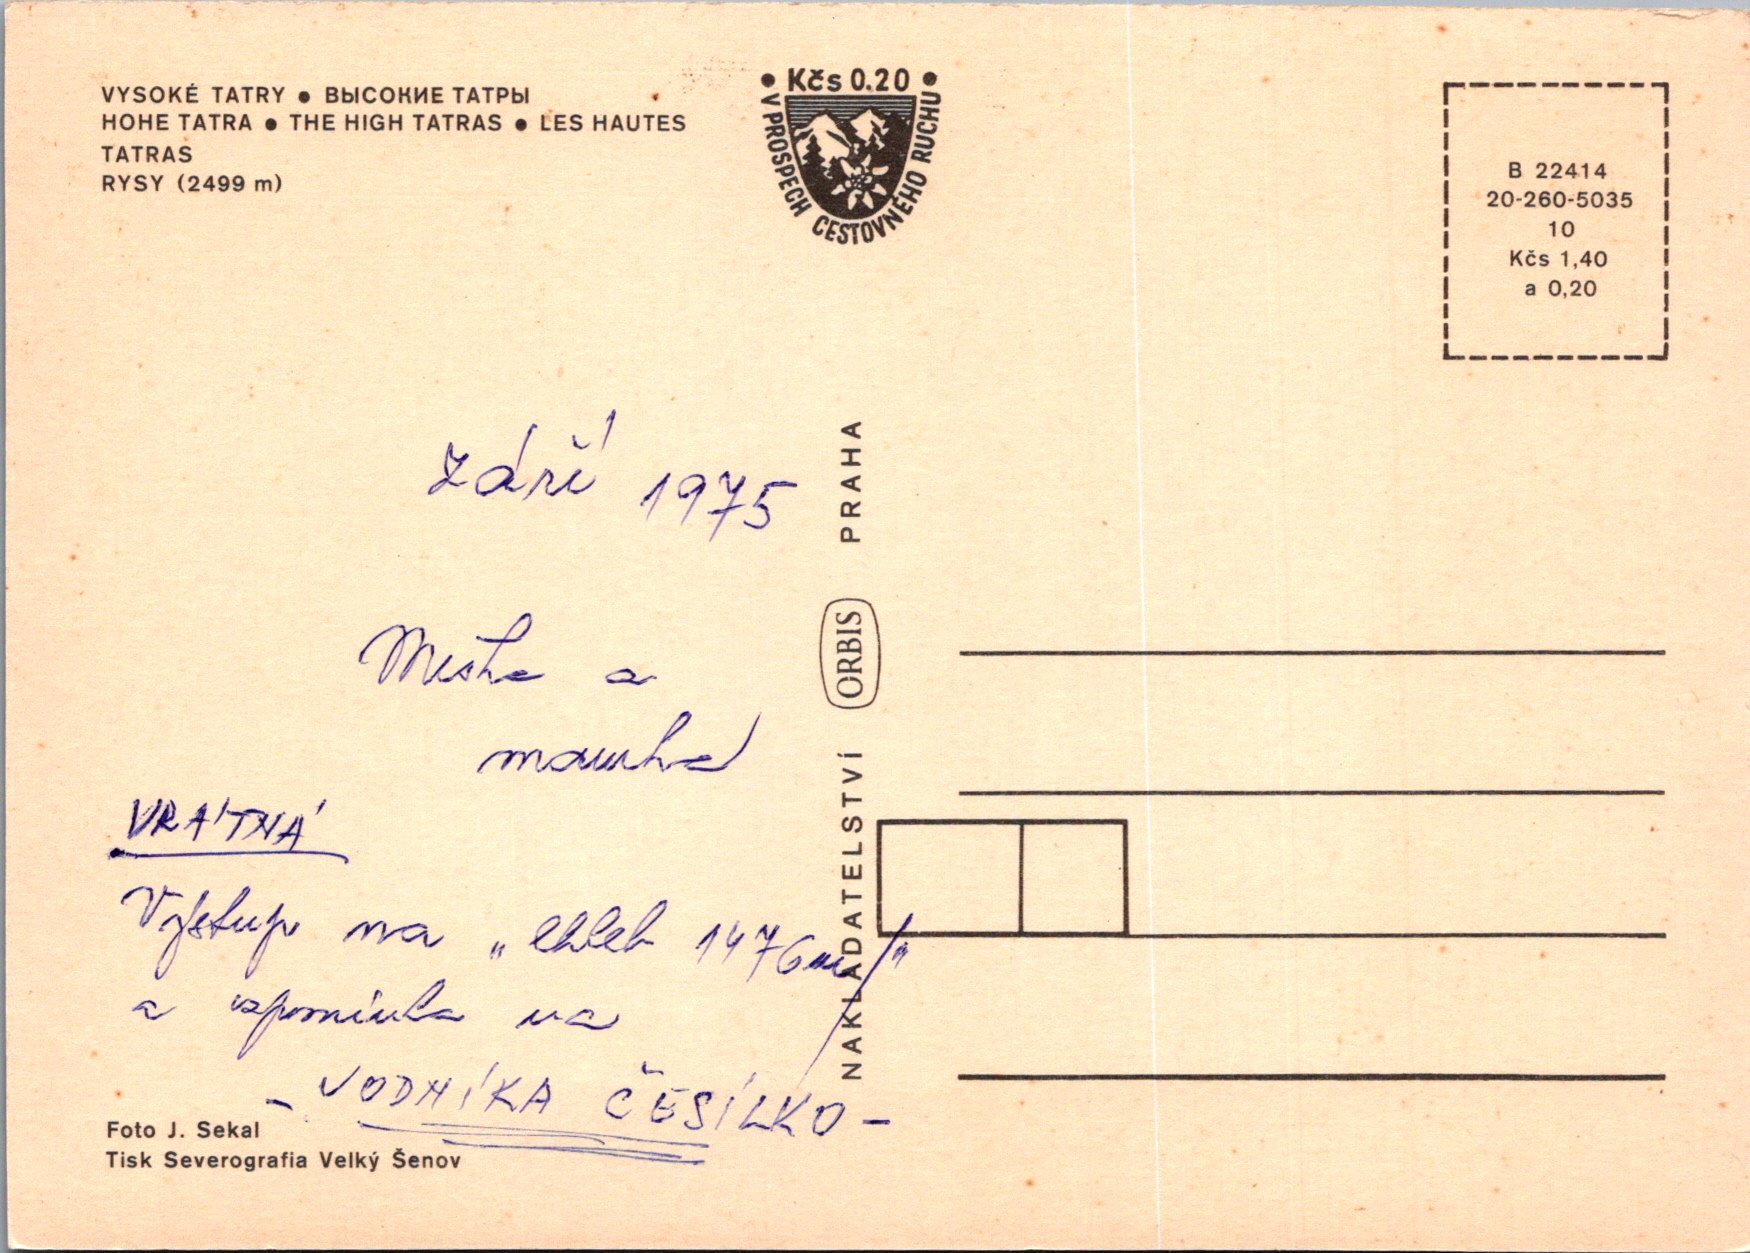 VYSOKÉ TATRY • ВЫСОКИЕ ТАТРЫ
HOHE TATRA • THE HIGH TATRAS • LES HAUTES
TATRAS
RYSY (2499 m)
• Kčs 0.20 •
V PROSPECH CESTOVNÉHO RUCHU
B 22414
20-260-5035
10
Kčs 1,40
a 0,20
Září 1975
a
mamka
VRÁTNÁ
Výstup na „chleb 1476m"
a vzpomínka na
- VODNÍKA ČESÍLKO -
NAKLADATELSTVÍ ORBIS PRAHA
Foto J. Sekal
Tisk Severografia Velký Šenov